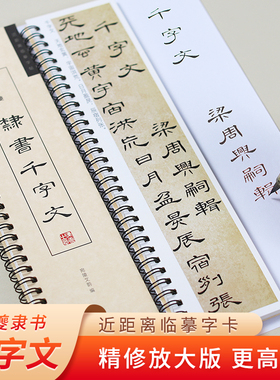 千字文
梁周興嗣輯
千字文
梁周興嗣輯
地玄黃宇宙洪荒日月
盈昃辰宿列張
隸書千字文
隶书
字文
近距离临摹字卡
精修放大版 更高